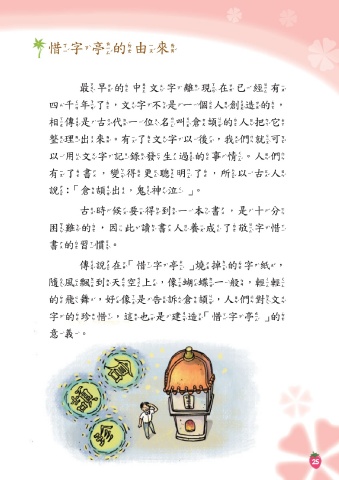 惜字亭的由來
最早的中文字離現在已經有
四千年了，文字不是一個人創造的，
相傳是古代一位名叫倉頡的人把它
整理出來。有了文字以後，我們就可
以用文字記錄發生過的事情。人們
有了書，變得更聰明了，所以古人
說：「倉頡出，鬼神泣」。
古時候要得到一本書，是十分
困難的，因此讀書人養成了敬字惜
書的習慣。
傳說在「惜字亭」燒掉的字紙，
隨風飄到天空上，像蝴蝶一般，輕輕
的飛舞，好像是告訴倉頡，人們對文
字的珍惜，這也是建造「惜字亭」的
意義。
25